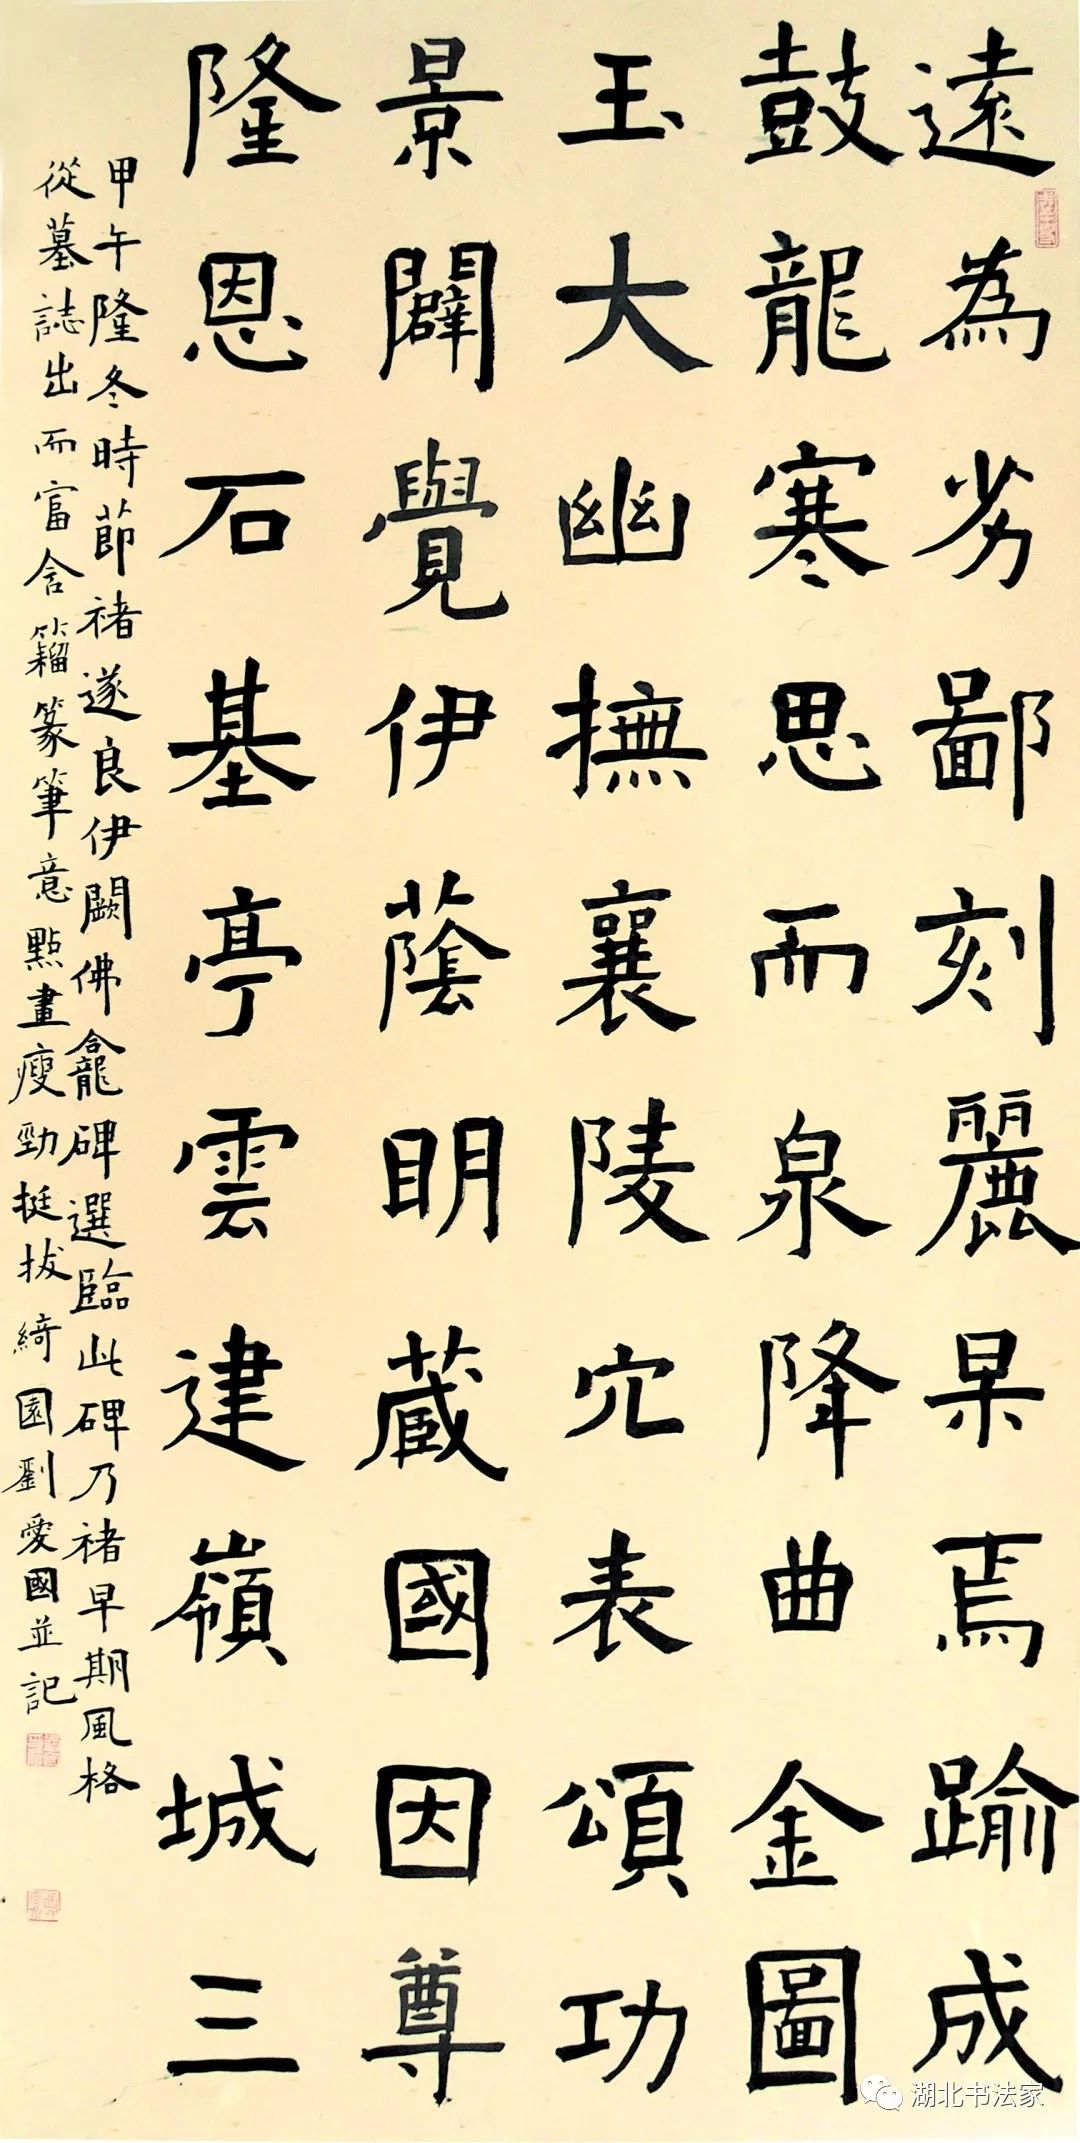 遠為劣鄙刻麗杲焉踰成
鼓龍寒思而泉降曲金圖
玉大幽撫襄陵穴表頌功
景闢覺伊蔭明蔵國因尊
隆恩石基亭雲建嶺城三
甲午隆冬時節褚遂良伊闕佛龕碑選臨此碑乃褚早期風格
從墓誌出而富含籀篆筆意點畫瘦勁挺拔綺園劉愛國並記
湖北书法家